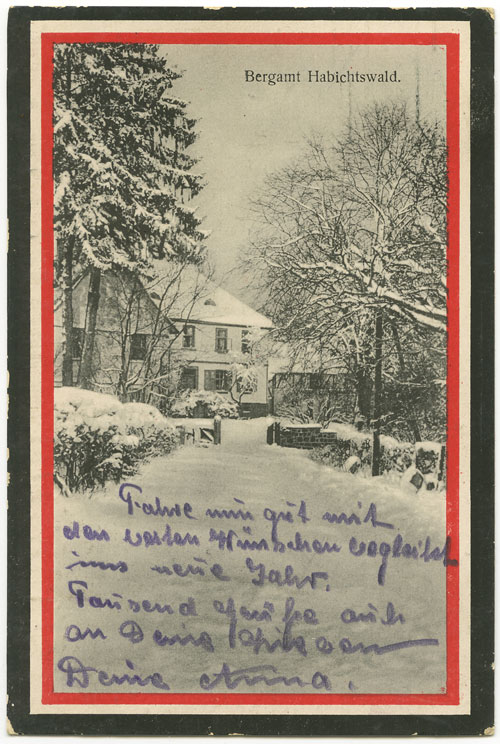 Bergamt Habichtswald.
Fahre nun gut mit
den besten Wünschen begleitet
ins neue Jahr.
Tausend Grüße auch
an Deine
Deine Anna.